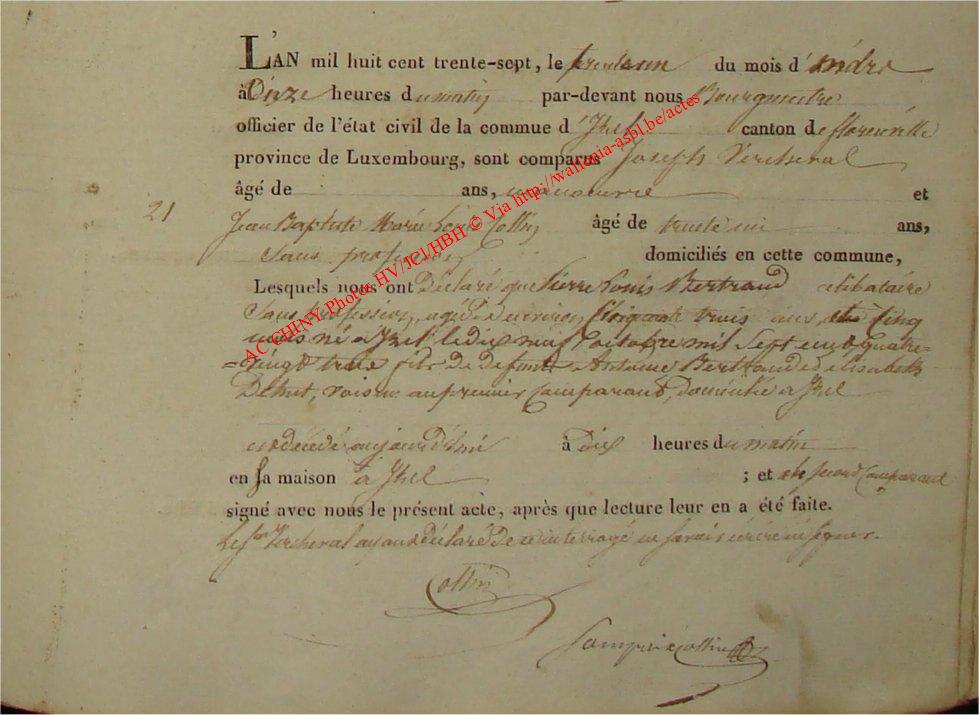 L'AN mil huit cent trente-sept, le du mois d'
à Onze heures du matin par-devant nous Bourgmestre
officier de l'état civil de la commune d'Izel canton de florenville
province de Luxembourg, sont comparus Joseph Vercheval
âgé de ans, manoeuvre et
21
Jean Baptiste Marie Collin âgé de trente ans,
Sans profession domiciliés en cette commune,
Lesquels nous ont Déclaré que Pierre Louis Bertrand célibataire
Sans profession, agé de environ Cinquante trois ans, Cinq
mois né à Izel le dix neuf octobre mil Sept cent quatre=
=vingt trois fils de defunts Antoine Bertrand et d'elisabeth
voisin au premier Comparant, domicilié à Izel
est décédé aujourd'hui à dix heures du matin
en sa maison à Izel ; et le second Comparant
signé avec nous le présent acte, après que lecture leur en a été faite.
Vercheval ayant déclaré de ce interrogé ne savoir écrire ni signer.
Collin
AC CHINY Photos HV/JCl/HBH © Via http://wallonia-asbl.be/actes